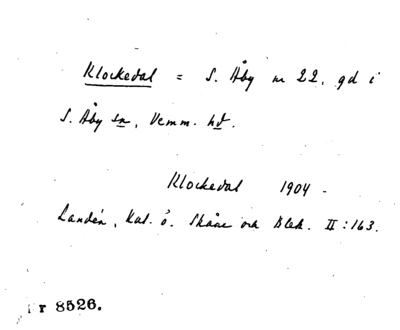 Klockedal = S. Åby nr 22, gd i
S. Åby sn, Vemm. hd.
Klockedal 1904 -
Landén, Kat. ö. Skåne och Blek. II : 163.
r 8526.